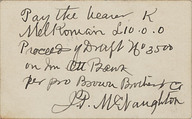 Pay the bearer K
McKomain £10.0.0
Proceeds of Draft No 3500
on Im Ott Bank
per pro Brown Brothers Co
J.P. McNaughton